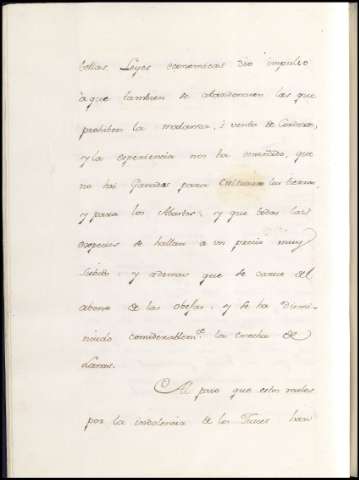 bellas Leyes economicas dio impulso
à que tambien se abandonasen las que
prohiben la matanza, i venta de Corderos,
y la experiencia nos ha enseñado, que
no hai Ganados para Cultivar las tierras,
y para los Abastos; y que todas las
especies se hallan a un precio muy
Subido: y ademas que se carece del
abono de las obejas: y se ha dismi-
nuido considerablem.te la cosecha de
Lanas.
Al paso que estos males
por la indolencia de los Jueces han